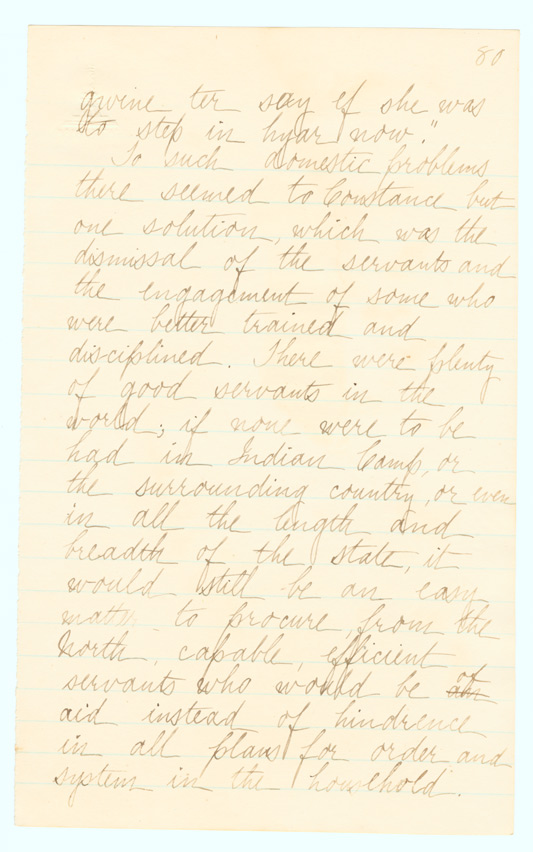 80
gwine ter say ef she was
to step in hyar now."
To such domestic problems
there seemed to Constance but
one solution, which was the
dismissal of the servants and
the engagement of some who
were better trained and
disciplined. There were plenty
of good servants in the
world; if none were to be
had in Indian Camp, or
the surrounding country, or even
in all the length and
breadth of the state, it
would still be an easy
matter to procure, from the
North, capable, efficient
servants who would be of
aid instead of hindrence
in all plans for order and
system in the household.